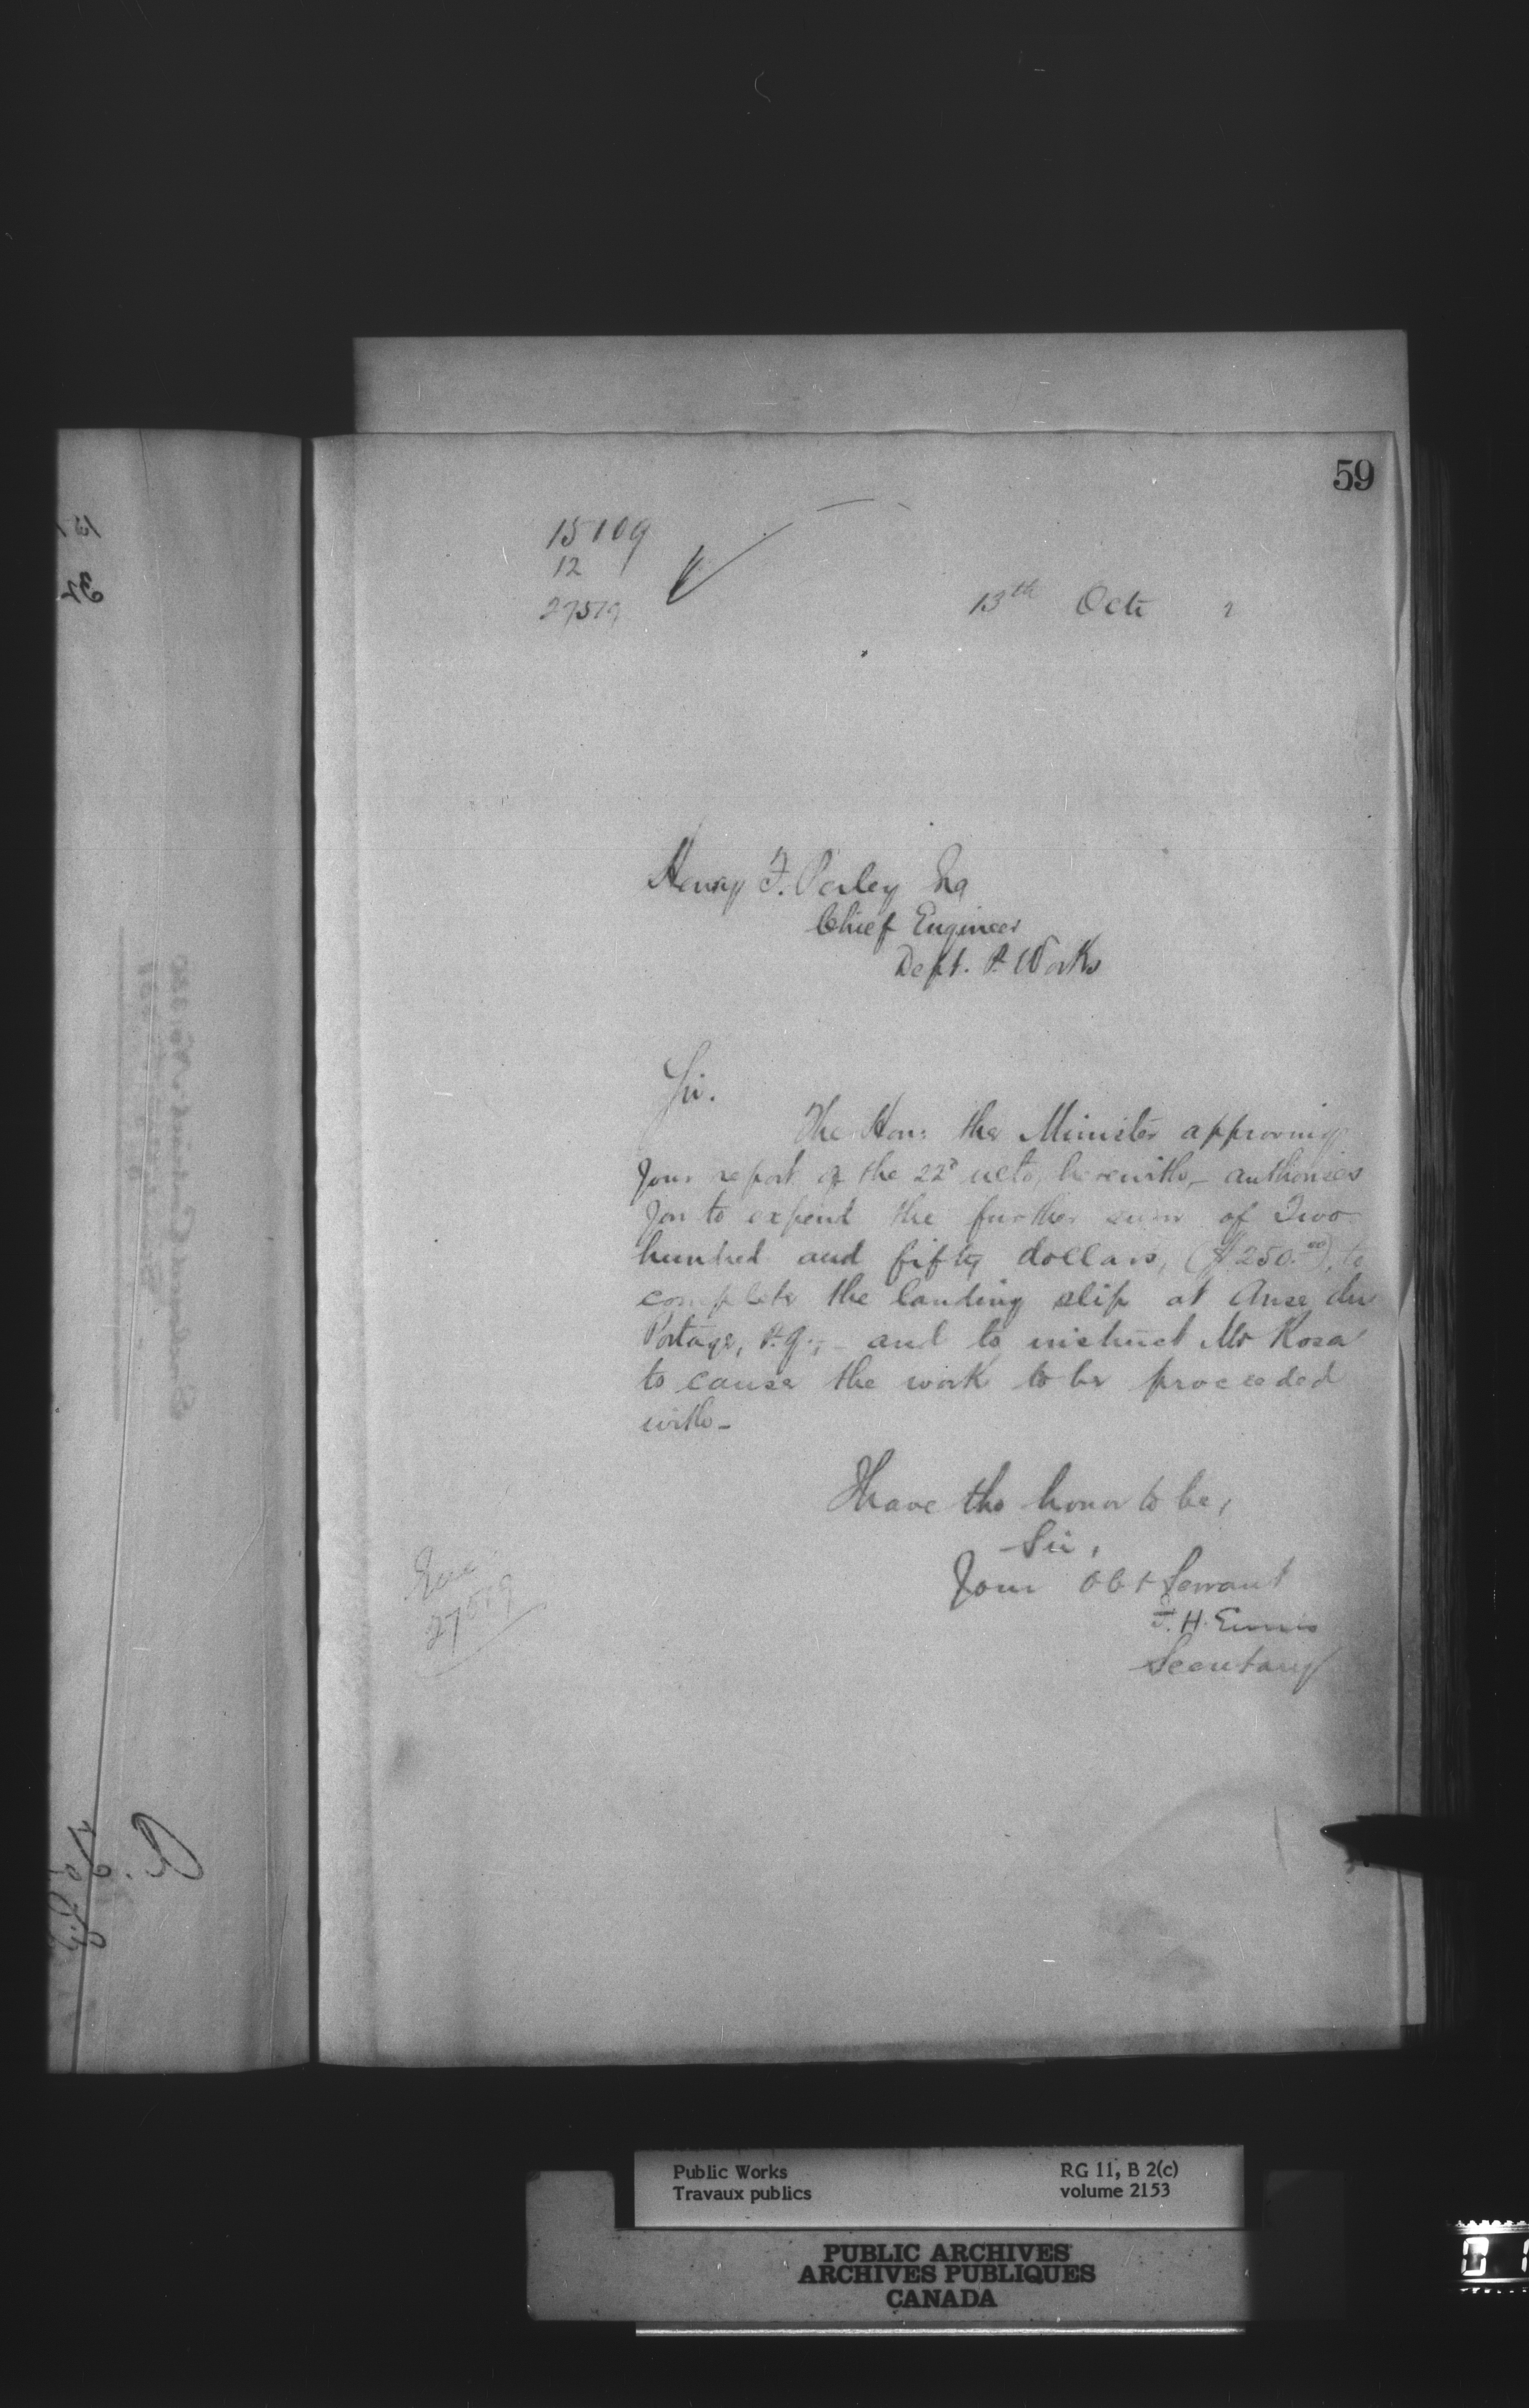 59
15109
12
27519
13th Octr 2
Henry F. Perley Esq
Chief Engineer
Dept. P. Works
Sir.
The Hon: the Minister approving
your report of the 22d ulto, herewith, - authorises
you to expend the further sum of Two
hundred and fifty dollars, ($250.00), to
complete the landing slip at Anse du
Portage, P.Q., - and to instruct Mr Rosa
to cause the work to be proceeded
with -
I have the honor to be,
Sir,
Your Obt Servant
F. H. Ennis
Secretary
27519
Public Works
Travaux publics
RG 11, B 2(c)
volume 2153
PUBLIC ARCHIVES
ARCHIVES PUBLIQUES
CANADA